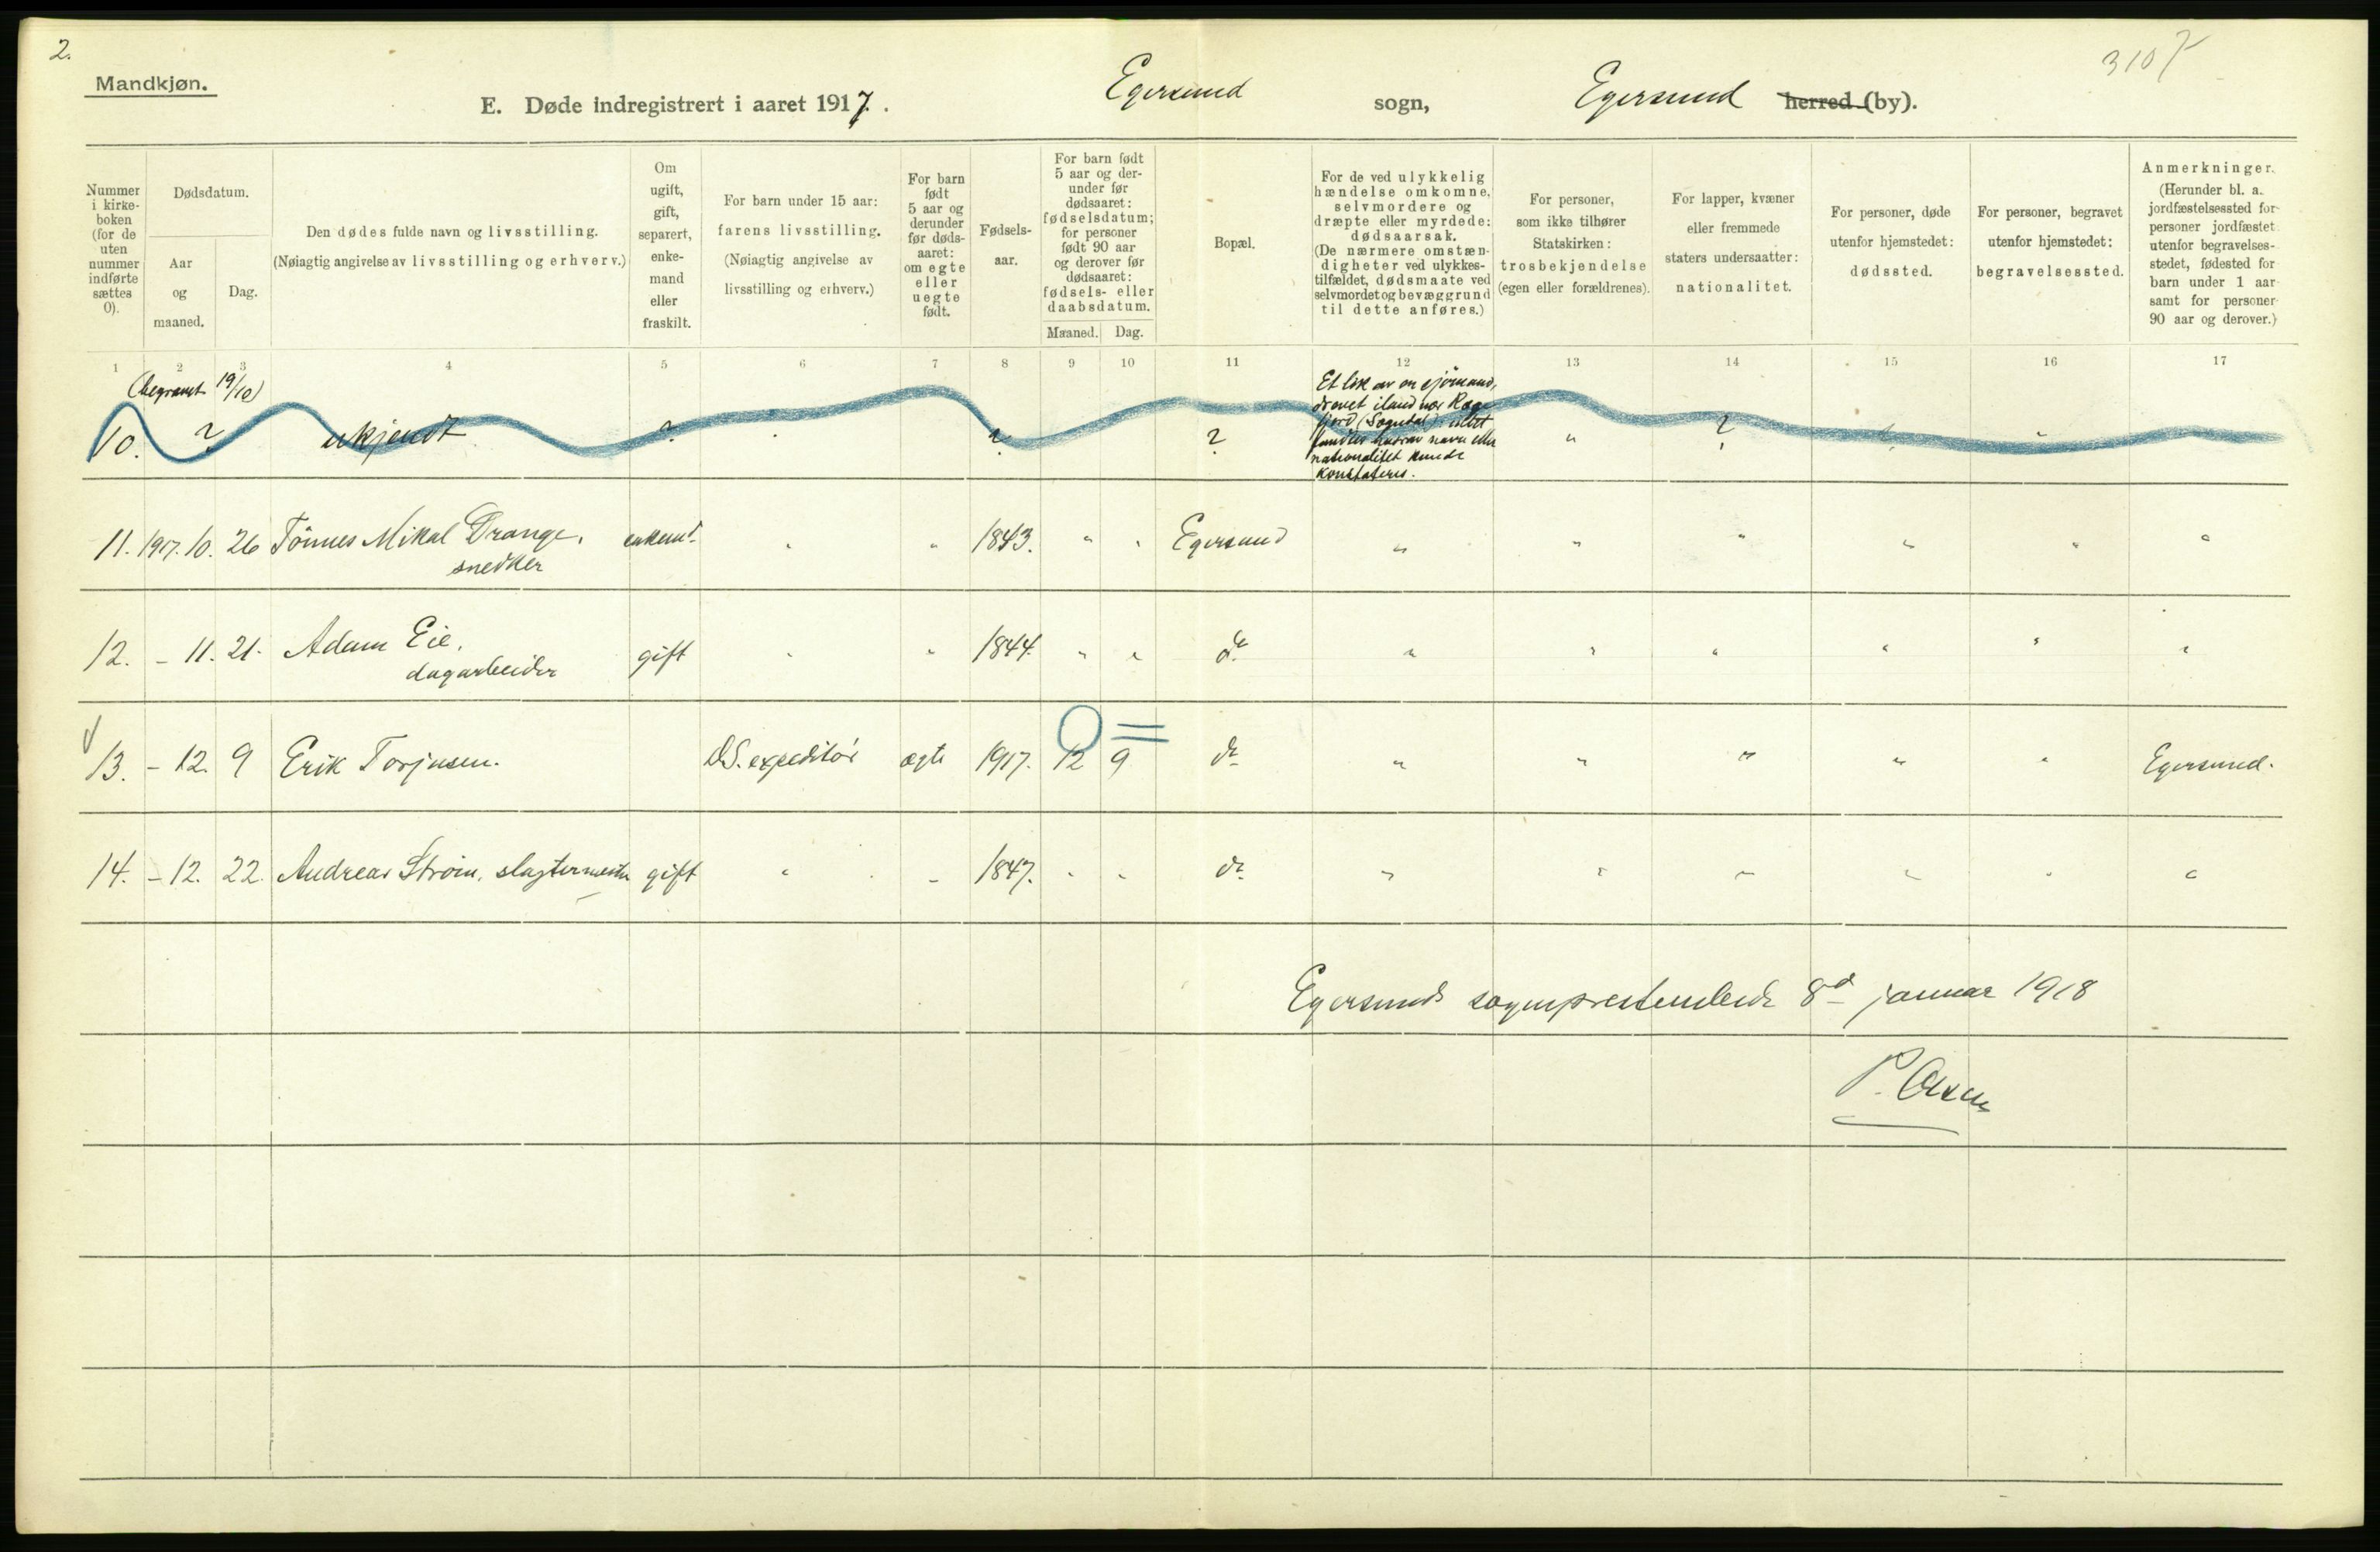 2.
3107
Mandkjøn.
E. Døde indregistrert i aaret 1917. Egersund sogn, Egersund herred (by).
Nummer i kirke-boken (for de uten nummer indførte sættes 0).
Dødsdatum.
Aar og maaned.
Dag.
Den dødes fulde navn og livsstilling.
(Nøiagtig angivelse av livsstilling og erhverv.)
Om ugift, gift, separert, enke-mand eller fraskilt.
For barn under 15 aar: farens livsstilling. (Nøiagtig angivelse av livsstilling og erhverv.)
For barn født 5 aar og derunder før døds-aaret: om egte eller uegte født.
Fødsels-aar.
For barn født 5 aar og der-under før dødsaaret: fødselsdatum; for personer født 90 aar og derover før dødsaaret: fødsels- eller daabsdatum.
Maaned. Dag.
Bopæl.
For de ved ulykkelig hændelse omkomne, selvmordere og dræpte eller myrdede: dødsaarsak. (De nærmere omstæn-digheter ved ulykkes-tilfældet, dødsmaate ved selvmordet og bevæggrund til dette anføres.)
For personer, som ikke tilhører Statskirken: trosbekjendelse (egen eller forældrenes).
For lapper, kvæner eller fremmede staters undersaatter: nationalitet.
For personer, døde utenfor hjemstedet: dødssted.
For personer, begravet utenfor hjemstedet: begravelsessted.
Anmerkninger. (Herunder bl. a. jordfæstelsessted for personer jordfæstet utenfor begravelses-stedet, fødested for barn under 1 aar samt for personer 90 aar og derover.)
1 2 3 4 5 6 7 8 9 10 11 12 13 14 15 16 17
(begravet 19/10)
10. ? ukjendt ? " ? ? Et lik av en sjömand, drevet iland nær Rægefjord (Sogndal) intet hvorav navn eller nationalitet kunde konstateres. " ? "
11. 1917. 10. 26 Tönnes Mikal Drange, enkemd. " " 1843. " " Egersund " " " " " "
snedker
12. – 11. 21. Adam Eie, gift " " 1844. " " do " " " " " "
dagarbeider
13. – 12. 9 Erik Torjusen. D.S. expeditör egte 1917. 12 9 do " " " " " Egersund.
14. – 12. 22. Andreas Ström, slagtermester gift " " 1847. " " do " " " " " "
Egersunds sogneprestembede 8d januar 1918
P. Olsen